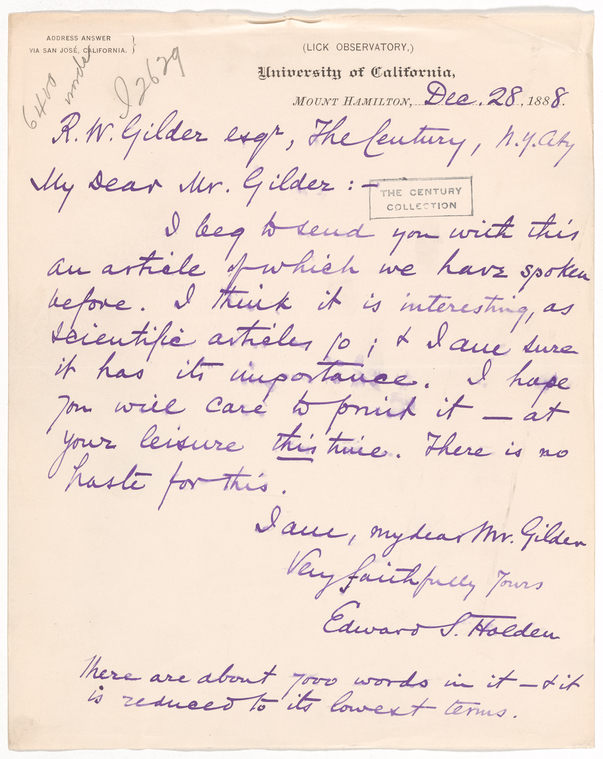 ADDRESS ANSWER
VIA SAN JOSÉ, CALIFORNIA.
6400 words
I 2629
(LICK OBSERVATORY,)
University of California,
MOUNT HAMILTON, Dec. 28, 1888.
R. W. Gilder esqr, The Century, N.Y. City
My Dear Mr. Gilder :—
THE CENTURY
COLLECTION
I beg to send you with this
an article of which we have spoken
before. I think it is interesting, as
scientific articles go ; & I am sure
it has its importance. I hope
you will care to print it — at
your leisure this time. There is no
haste for this.
I am, my dear Mr. Gilder
Very faithfully Yours
Edward S. Holden
There are about 7000 words in it — & it
is reduced to its lowest terms.